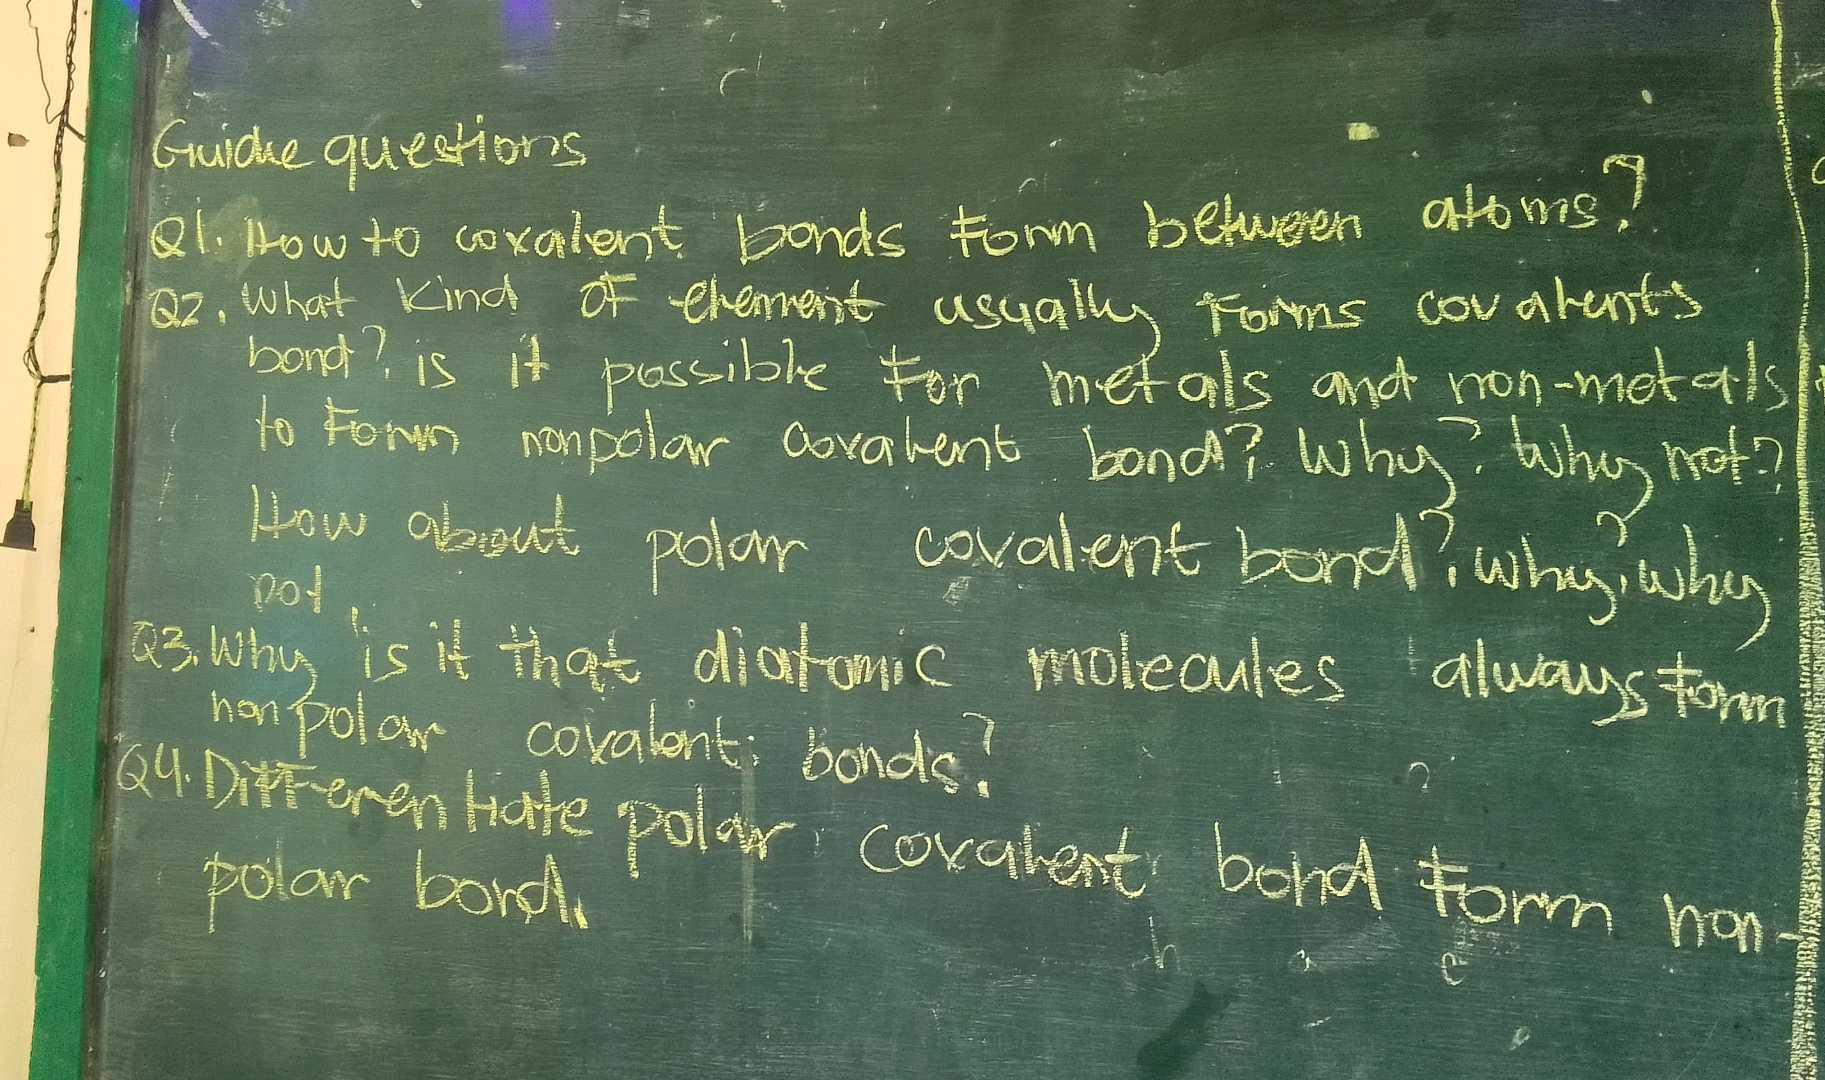 Guide questions
Q1. How to covalent bonds form between atoms?
Q2. What kind of element usually forms covalents
bond? is it possible for metals and non-metals
to form nonpolar covalent bond? Why? Why not?
How about polar covalent bond? why? why
not.
Q3. Why is it that diatomic molecules always form
nonpolar covalent bonds?
Q4. Differentiate polar covalent bond form non-
polar bond.